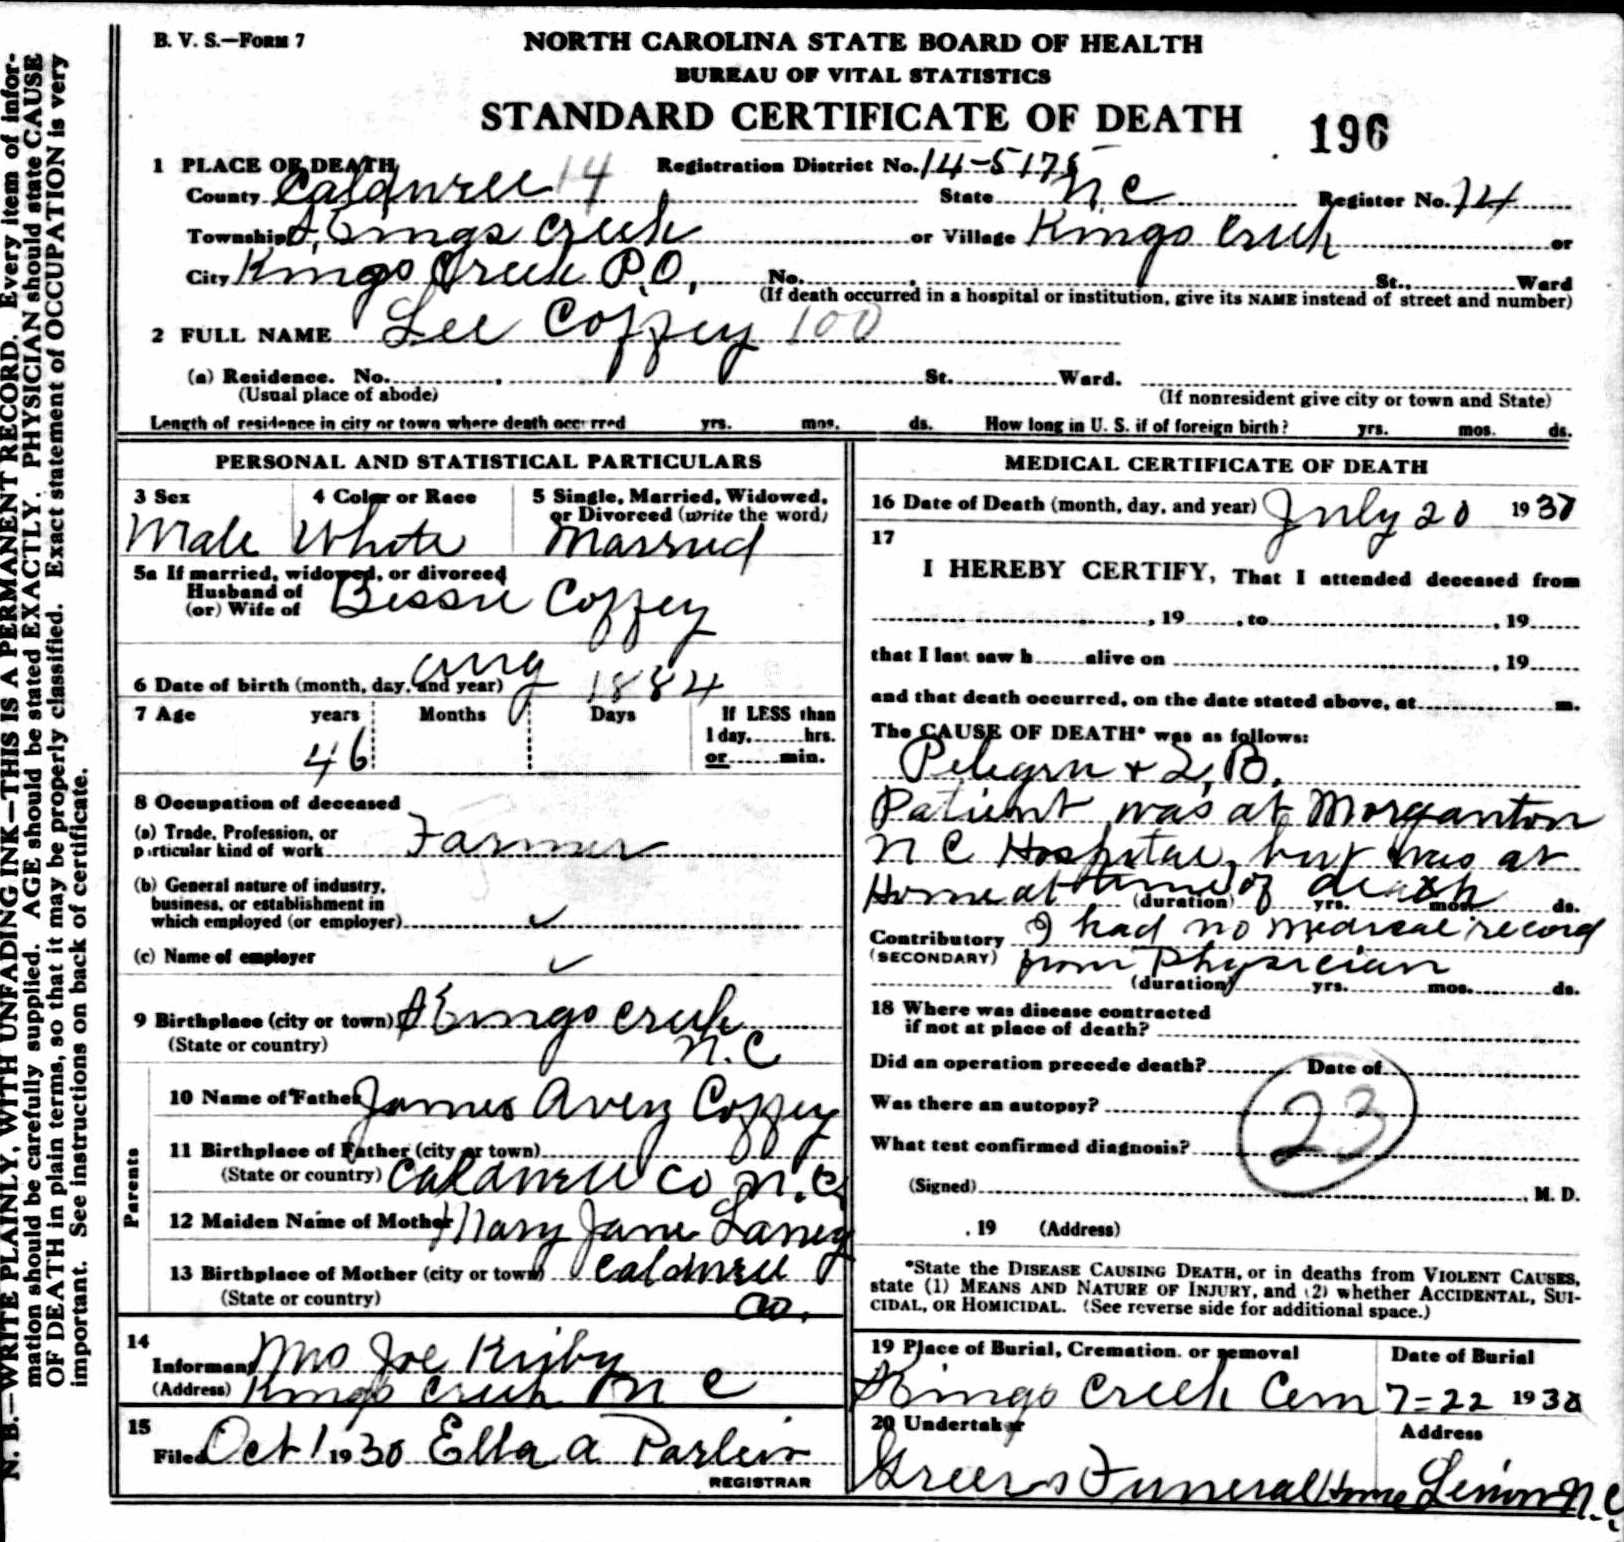 B. V. S.—FORM 7
NORTH CAROLINA STATE BOARD OF HEALTH
BUREAU OF VITAL STATISTICS
STANDARD CERTIFICATE OF DEATH 196
1 PLACE OF DEATH Registration District No. 14-5175
County Caldwell 14 State N C Register No. 14
Township Kings Creek or Village Kings Creek or
City Kings Creek P.O, No. St., Ward
(If death occurred in a hospital or institution, give its NAME instead of street and number)
2 FULL NAME Lee Coffey 100
(a) Residence. No. St. Ward.
(Usual place of abode) (If nonresident give city or town and State)
Length of residence in city or town where death occurred yrs. mos. ds. How long in U. S. if of foreign birth? yrs. mos. ds.
PERSONAL AND STATISTICAL PARTICULARS
3 Sex 4 Color or Race 5 Single, Married, Widowed,
or Divorced (write the word)
Male White Married
5a If married, widowed, or divorced
Husband of
(or) Wife of Bessie Coffey
6 Date of birth (month, day, and year) Aug 1884
7 Age years Months Days If LESS than
1 day, hrs.
46 or min.
8 Occupation of deceased
(a) Trade, Profession, or
particular kind of work Farmer
(b) General nature of industry,
business, or establishment in
which employed (or employer) ✓
(c) Name of employer ✓
9 Birthplace (city or town) Kings Creek
(State or country) N.C
Parents
10 Name of Father James Avery Coffey
11 Birthplace of Father (city or town)
(State or country) Caldwell Co N.C
12 Maiden Name of Mother Mary Jane Laney
13 Birthplace of Mother (city or town) Caldwell
(State or country) Co.
14
Informant Mrs Joe Kirby
(Address) Kings Creek N C
15
Filed Oct 1 1930 Ella A
REGISTRAR
MEDICAL CERTIFICATE OF DEATH
16 Date of Death (month, day, and year) July 20 1930
17
I HEREBY CERTIFY, That I attended deceased from
, 19 , to , 19
that I last saw h alive on , 19
and that death occurred, on the date stated above, at m.
The CAUSE OF DEATH* was as follows:
Pelegra + T.B.
Patient was at Morganton
N C Hospital, but was at
Home at time of death
(duration) yrs. mos. ds.
Contributory I had no medical record
(SECONDARY) from Physician
(duration) yrs. mos. ds.
18 Where was disease contracted
if not at place of death?
Did an operation precede death? Date of
Was there an autopsy? 23
What test confirmed diagnosis?
(Signed) , M. D.
, 19 (Address)
*State the DISEASE CAUSING DEATH, or in deaths from VIOLENT CAUSES,
state (1) MEANS AND NATURE OF INJURY, and (2) whether ACCIDENTAL, SUI-
CIDAL, OR HOMICIDAL. (See reverse side for additional space.)
19 Place of Burial, Cremation, or removal Date of Burial
Kings Creek Cem 7-22 1930
20 Undertaker Address
Greers Funeral Home Lenoir N.C.
N. B.—WRITE PLAINLY, WITH UNFADING INK—THIS IS A PERMANENT RECORD. Every item of infor-
mation should be carefully supplied. AGE should be stated EXACTLY. PHYSICIAN should state CAUSE
OF DEATH in plain terms, so that it may be properly classified. Exact statement of OCCUPATION is very
important. See instructions on back of certificate.